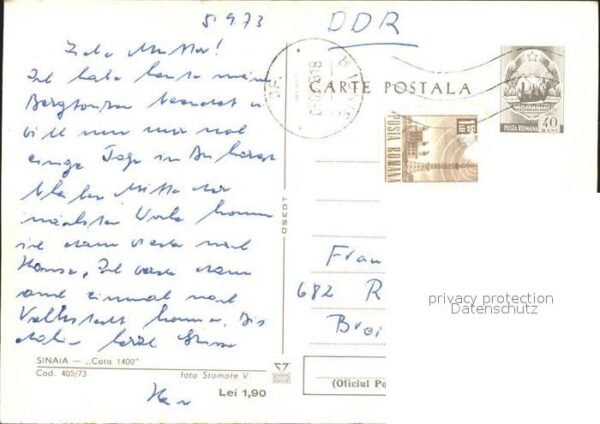 5 9 73
DDR
Liebe Mutter!
Ich habe heute meine
Bergtouren beendet u.
will nun nur noch
einige Tage in Bukarest
bleiben. Mitte der
nächsten Woche komme
ich dann wieder nach
Hause. Ich werde dann
auch einmal nach
kommen. Bis
dahin herzl. Grüsse
SINAIA — „Cota 1400"
Cod. 405/73
Foto Stamate V.
Lei 1,90
CARTE POSTALA
POSTA ROMANA
40
BANI
POSTA ROMANA
OSEDT
Frau
682 R
Brei
privacy protection
Datenschutz
(Oficiul Po